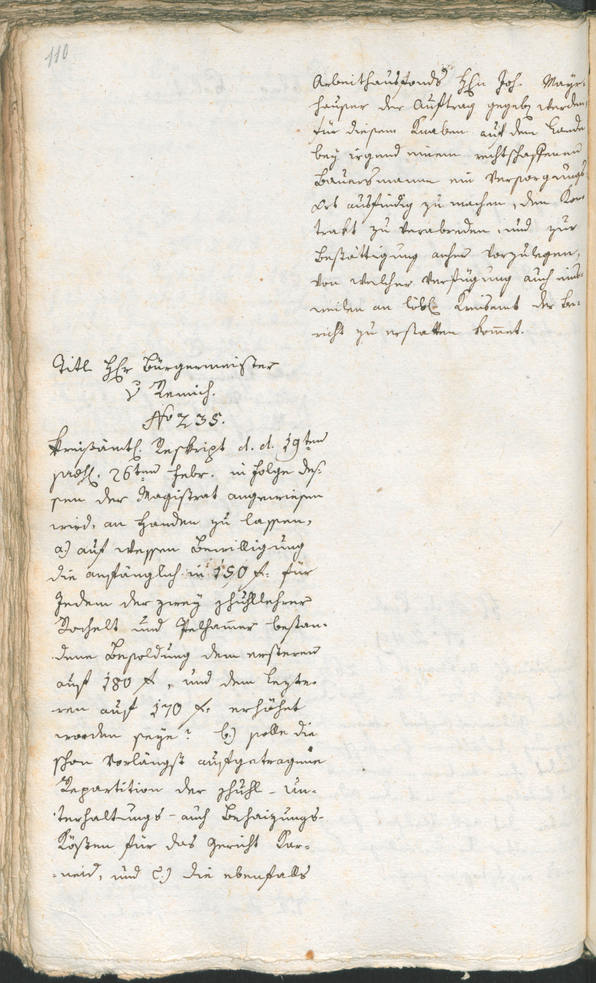 110
Arbeithausfonds Hhn Joh. Mayr-
hauser der Auftrag gegeben werden
für diesem Knaben auf dem Lande
bey irgend einem rechtschaffenen
Bauersmann ein Versorgungs
Ort ausfündig zu machen, den Kon-
trakt zu verabreden, und zur
Bestättigung anher vorzulegen,
von welcher Verfügung auch einst-
weilen an löbl. Kreisamt der Be-
richt zu erstatten kommt.
Titl Hhr Bürgermeister
v Remich.
No 235.
Kreisämtl. Reskript d. d. 19ten
26ten Febr. in Folge des-
sen der Magistrat angewiesen
wird, an Handen zu lassen,
a) auf wessen Bewilligung
die anfänglich in 150 f. für
Jedem der zwey Schullehrer
Rochelt und Pelhamer bestan-
dene Besoldung dem ersteren
auf 180 f, und dem letzte-
ren auf 170 f. erhöhet
worden seye? b) solle die
schon vorlängst aufgetragene
Repartition der Schuhl-Un-
terhaltungs- auch Behaizungs-
Kösten für das Gericht Kar-
neid, und c) die ebenfalls